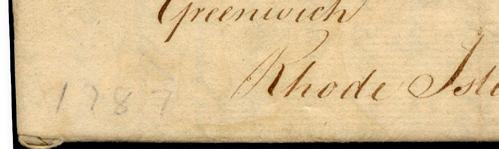 Greenwich
Rhode Isl
1787